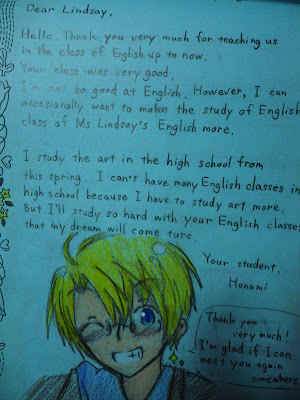 Dear Lindsay,
Hello. Thank you very much for teaching us
in the class of English up to now.
Your class was very good.
I'm not so good at English. However, I can
occesionally want to make the study of English
class of Ms. Lindsay's English more.
I study the art in the high school from
this spring. I can't have many English classes in
high school because I have to study art more.
But I'll study so hard with your English classes
that my dream will come ture.
Your student,
Honami
Thank you
very much!
I'm glad if I can
meet you again
somewhere